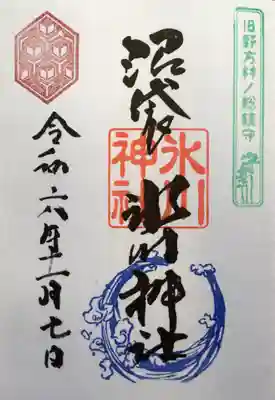 旧野方村ノ総鎮守
沼袋氷川神社
氷川神社
令和六年
月七日